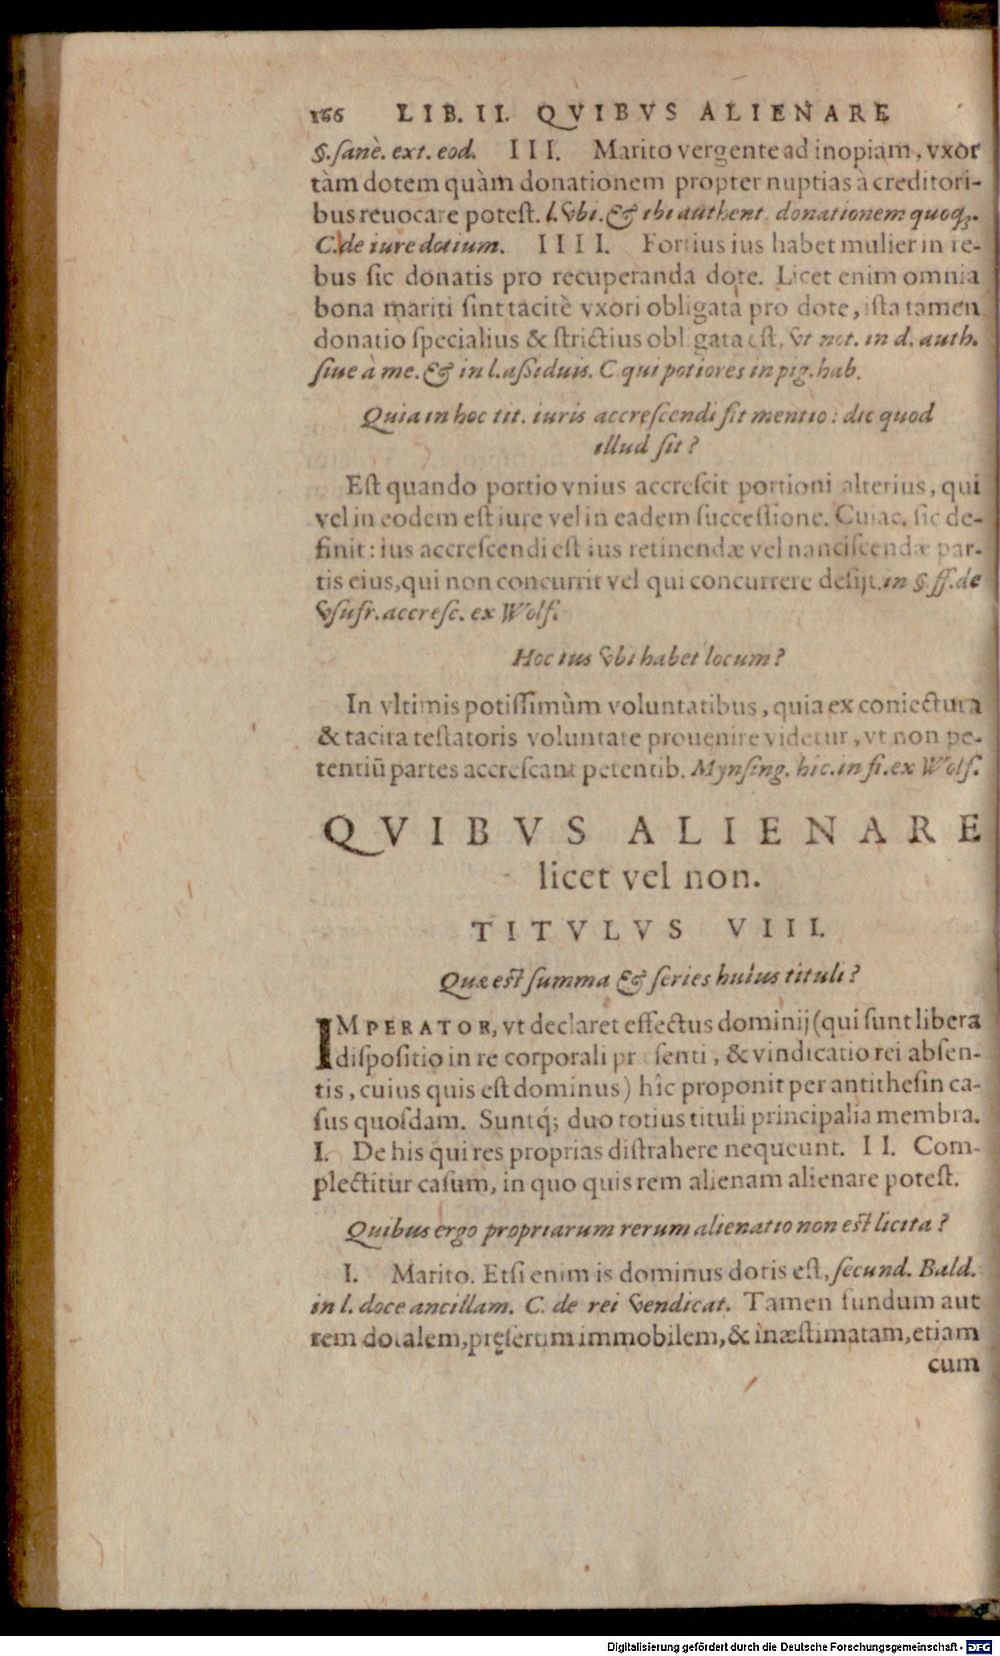 166 LIB. II. QVIBVS ALIENARE
§. ſanè. ext. eod. III. Marito vergente ad inopiam, vxor
tàm dotem quàm donationem propter nuptias à creditori-
bus reuocare poteſt. l. vbi. & ibi authent. donationem quoq;.
C. de iure dotium. IIII. Fortius ius habet mulier in re-
bus ſic donatis pro recuperanda dote. Licet enim omnia
bona mariti ſint tacitè vxori obligata pro dote, iſta tamen
donatio ſpecialius & ſtrictius obligata eſt, vt not. in d. auth.
ſiue à me. & in l. aſsiduis. C qui potiores in pig. hab.
Quia in hoc tit. iuris accreſcendi fit mentio: dic quod
illud ſit?
Eſt quando portio vnius accreſcit portioni alterius, qui
vel in eodem eſt iure vel in eadem ſucceſſione. Cuiac. ſic de-
finit: ius accreſcendi eſt ius retinendæ vel nanciſcendæ par-
tis eius, qui non concurrit vel qui concurrere deſijt. in §. ff. de
vſufr. accreſc. ex Wolf.
Hoc ius vbi habet locum?
In vltimis potiſſimùm voluntatibus, quia ex coniectura
& tacita teſtatoris voluntate prouenire videtur, vt non pe-
tentiū partes accreſcant petentib. Mynſing. hic. in fi. ex Wolf.
QVIBVS ALIENARE
licet vel non.
TITVLVS VIII.
Quæ eſt ſumma & ſeries huius tituli?
IMPERATOR, vt declaret effectus dominij (qui ſunt libera
diſpoſitio in re corporali præſenti, & vindicatio rei abſen-
tis, cuius quis eſt dominus) hîc proponit per antitheſin ca-
ſus quoſdam. Suntq́; duo totius tituli principalia membra.
I. De his qui res proprias diſtrahere nequeunt. II. Com-
plectitur caſum, in quo quis rem alienam alienare poteſt.
Quibus ergo propriarum rerum alienatio non eſt licita?
I. Marito. Etſi enim is dominus dotis eſt, ſecund. Bald.
in l. doce ancillam. C. de rei vendicat. Tamen fundum aut
rem dotalem, pręſertim immobilem, & inæſtimatam, etiam
cum
Digitalisierung gefördert durch die Deutsche Forschungsgemeinschaft - DFG